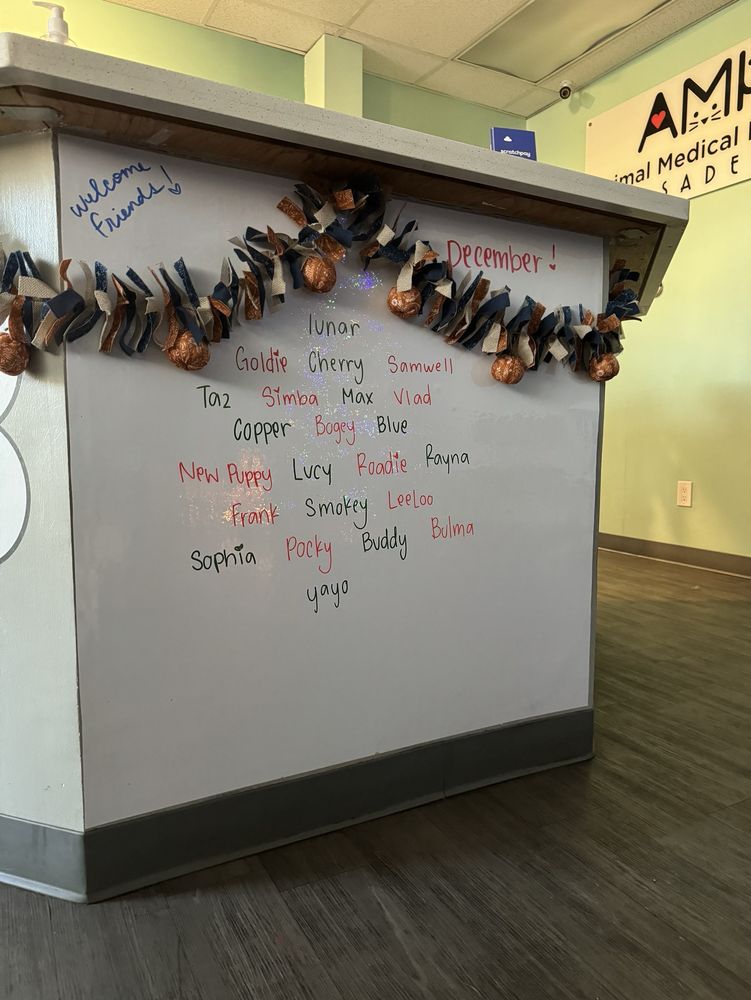 welcome
friends!
December!
lunar
Goldie Cherry Samwell
Taz Simba Max Vlad
Copper Bogey Blue
New Puppy Lucy Roadie Rayna
Frank Smokey LeeLoo
Sophia Pocky Buddy Bulma
yayo
scratchpay
AM
imal Medical
SADE